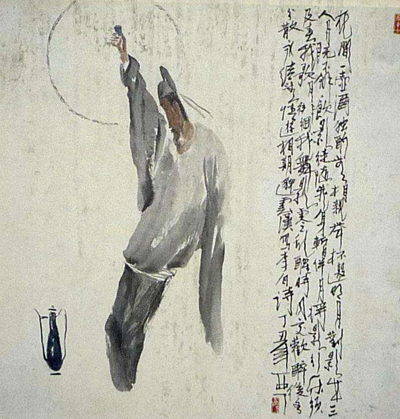 花間一壺酒獨酌無相親舉杯邀明月對影成三
人月既不解飲影徒隨我身暫伴月將影行樂須
及春我歌月徘徊我舞影零亂醒時同交歡醉後各
分散永結無情遊相期邈雲漢寫李白詩丁丑